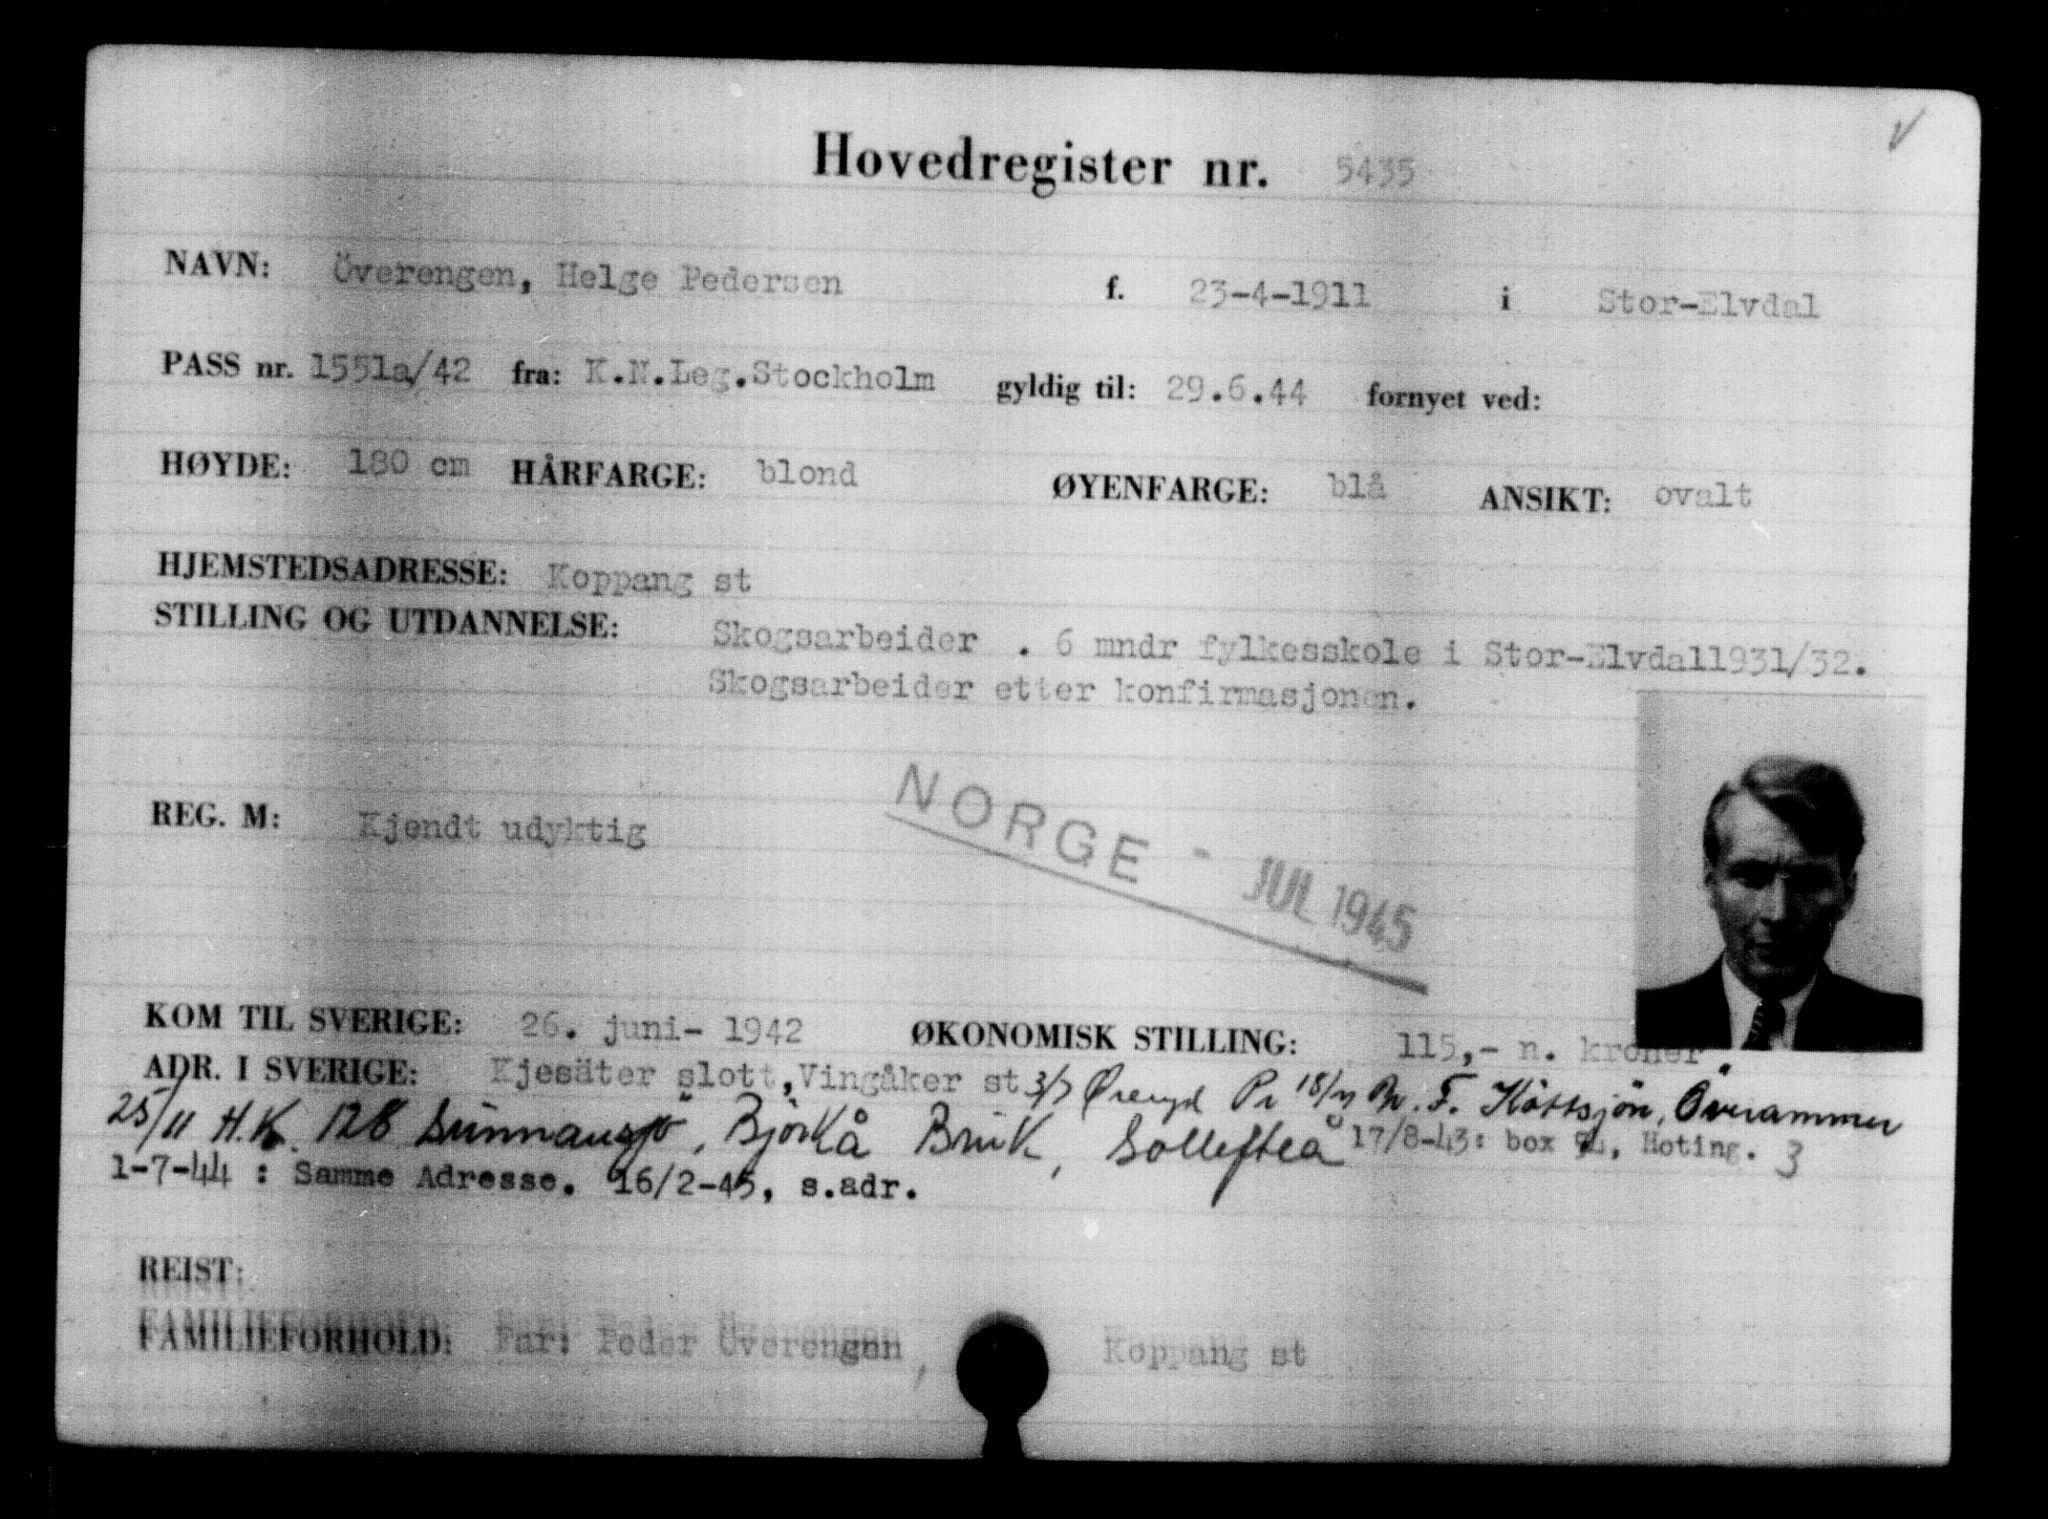 Hovedregister nr. 5435
NAVN: Överengen, Helge Pedersen f. 23-4-1911 i Stor-Elvdal
PASS nr. 1551a/42 fra: K.N.Leg.Stockholm gyldig til: 29.6.44 fornyet ved:
HØYDE: 180 cm HÅRFARGE: blond ØYENFARGE: blå ANSIKT: ovalt
HJEMSTEDSADRESSE: Koppang st
STILLING OG UTDANNELSE: Skogsarbeider . 6 mndr fylkesskole i Stor-Elvdal1931/32.
Skogsarbeider etter konfirmasjonen.
REG. M: Kjendt udyktig
NORGE - JUL 1945
KOM TIL SVERIGE: 26. juni- 1942 ØKONOMISK STILLING: 115,- n. kroner
ADR. I SVERIGE: Kjesäter slott, Vingåker st 3/7 18/7 F. Köttsjön, Överammer
25/11 H.K. 128 Sunnansjö, Björkå Bruk, Sollefteå 17/8-43: box, Hoting. 3
1-7-44 : Samme Adresse. 16/2-45, s.adr.
REIST:
FAMILIEFORHOLD: Far: Peder Överengen, Koppang st